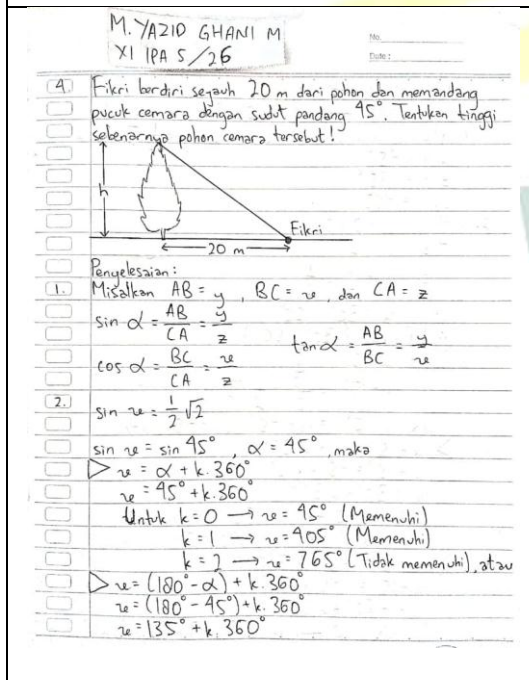 M. YAZID GHANI M
XI IPA 5/26
No.
Date :
4. Fikri berdiri sejauh 20 m dari pohon dan memandang
pucuk cemara dengan sudut pandang 45°. Tentukan tinggi
sebenarnya pohon cemara tersebut!
h
Fikri
20 m
Penyelesaian :
1. Misalkan AB = y, BC = x, dan CA = z
sin α = AB/CA = y/z
tan α = AB/BC = y/x
cos α = BC/CA = x/z
2. sin x = 1/2 √2
sin x = sin 45°, α = 45°, maka
▷ x = α + k. 360°
x = 45° + k. 360°
Untuk k = 0 → x = 45° (Memenuhi)
k = 1 → x = 405° (Memenuhi)
k = 2 → x = 765° (Tidak memenuhi), atau
▷ x = (180° - α) + k. 360°
x = (180° - 45°) + k. 360°
x = 135° + k. 360°